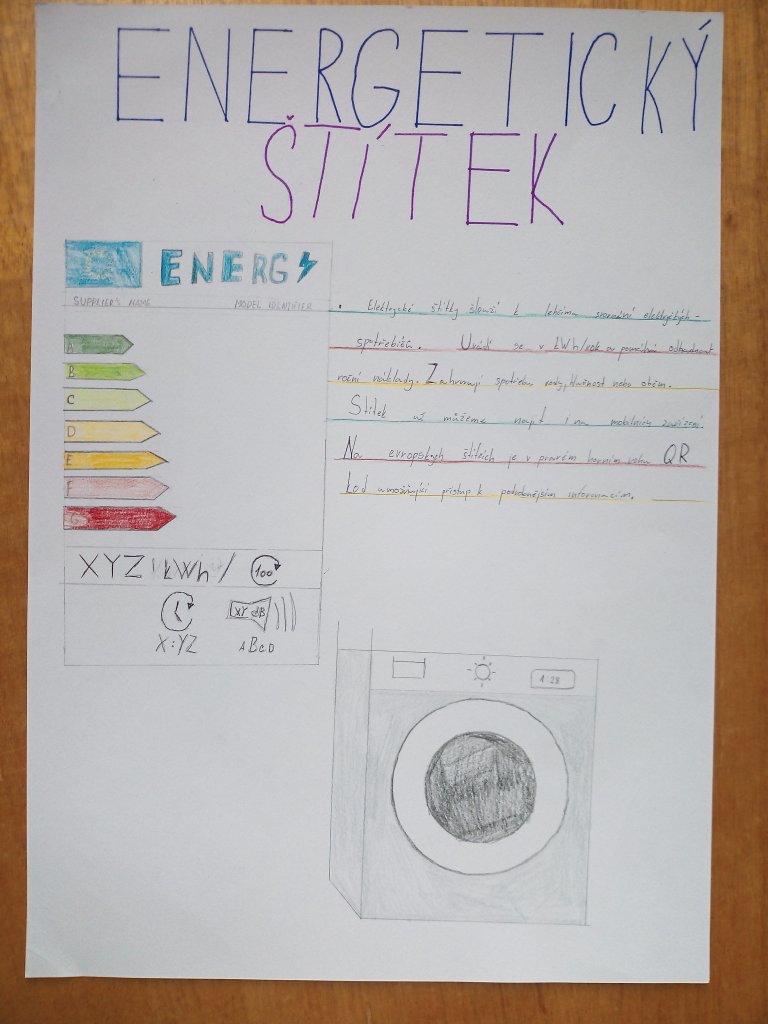 ENERGETICKÝ
ŠTÍTEK
ENERG
SUPPLIER'S NAME MODEL IDENTIFIER
A
B
C
D
E
F
G
XYZ kWh/ 100
XY dB
X:YZ ABCD
• Elektrycké štítky slouží k lehčímu srovnání elektrických-
spotřebičů. Uvádí se v kWh/rok a pomáhá odhadnout
roční náklady. Zahrnují spotřebu vody, hlučnost nebo objem.
Štítek už můžeme najít i na mobilních zařízení.
Na evropských štítcích je v pravém horním rohu QR
kód umožňující přístup k podrobnějším informacím.
1:28